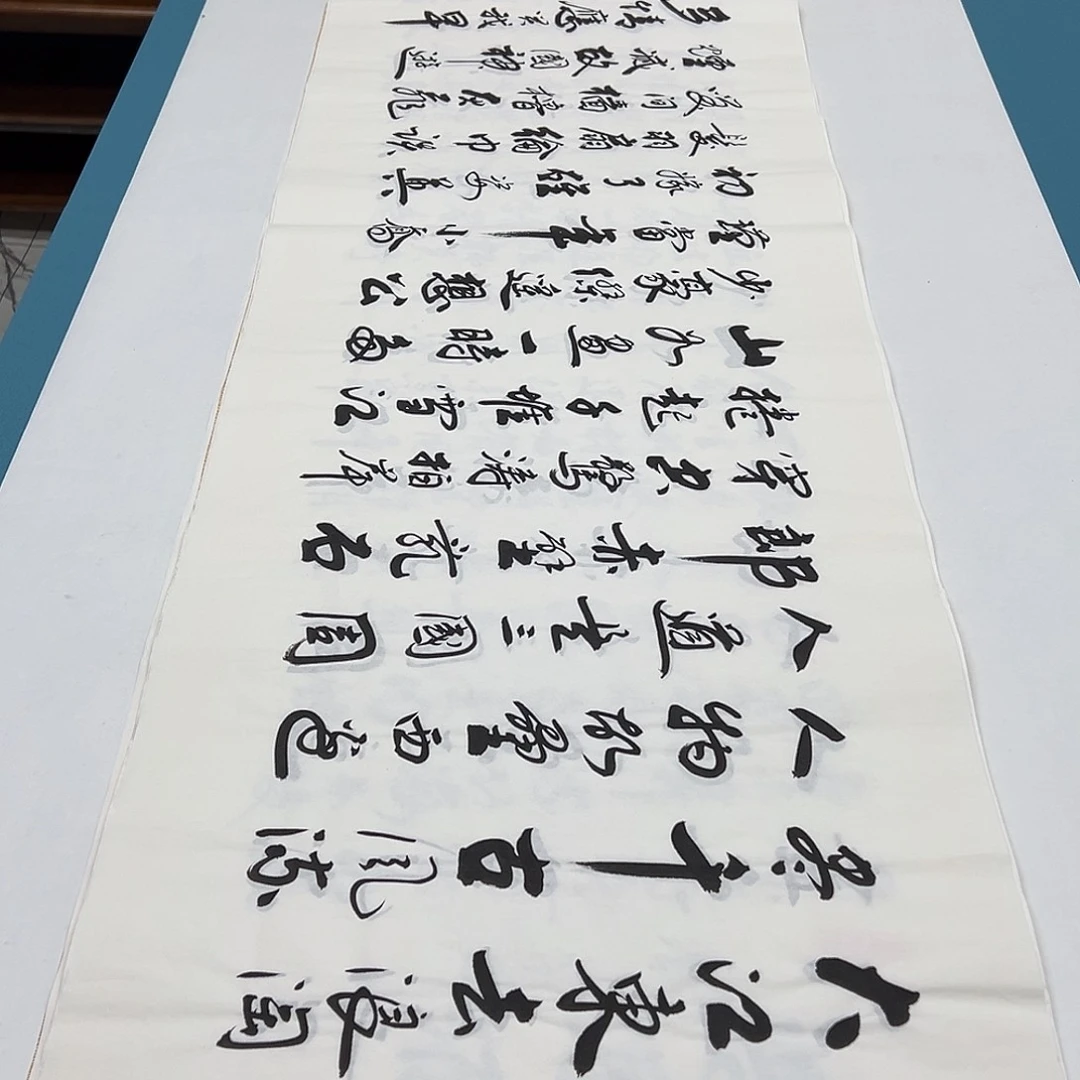 大江東去浪淘
盡千古風流
人物故壘西邊
人道是三國周
郎赤壁亂石
穿空驚濤拍岸
捲起千堆雪江
山如畫一時多
少豪傑遙想公
瑾當年小喬
初嫁了雄姿英
發羽扇綸巾談
笑間檣櫓灰飛
煙滅故國神遊
多情應笑我早